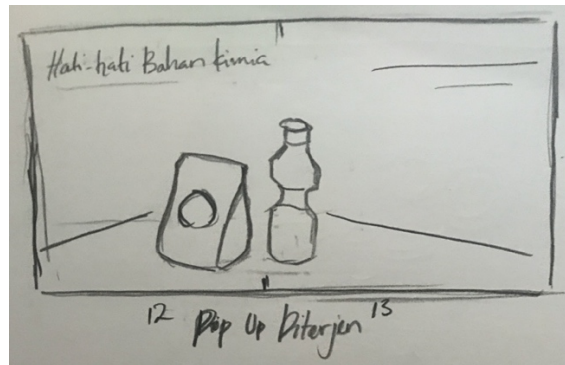 Hati-hati Bahan kimia
12 Pop Up Diterjen 13